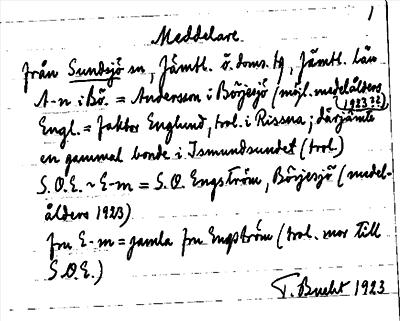 1
Meddelare.
från Sundsjö sn, Jämtl. ö. doms. tg, Jämtl. län
A-n i Bö. = Andersson i Börjesjö (möjl. medelålders
1923??)
Engl. = faktor Englund, trol. i Rissna; därjämte
en gammal bonde i Ismundsundet (trol.)
S.O.E. ~ E-m = S.O. Engström, Börjesjö (medel-
ålders 1923)
fru E-m = gamla fru Engström (trol. mor till
S.O.E.)
T. Bucht 1923